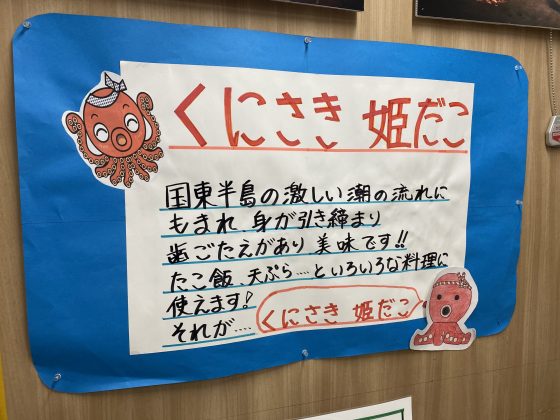 くにさき 姫だこ
国東半島の激しい潮の流れに
もまれ、身が引き締まり
歯ごたえがあり 美味です!!
たこ飯、天ぷら……といろいろな料理に
使えます!
それが……
くにさき 姫だこ